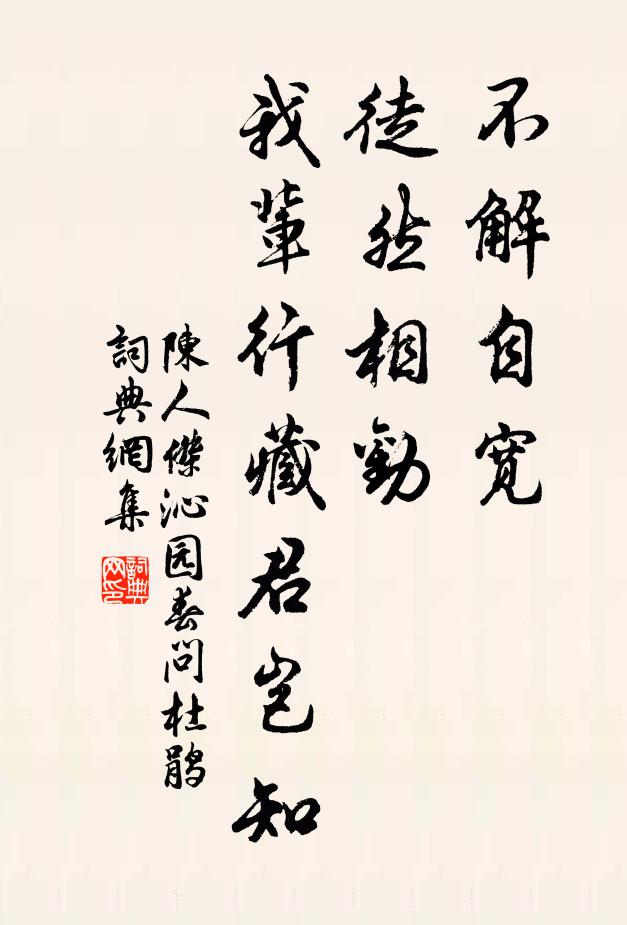 不解自宽
徒然相勸
我輩行藏君豈知
陳人傑沁园春問杜鹃
詞典網集
詞典网印